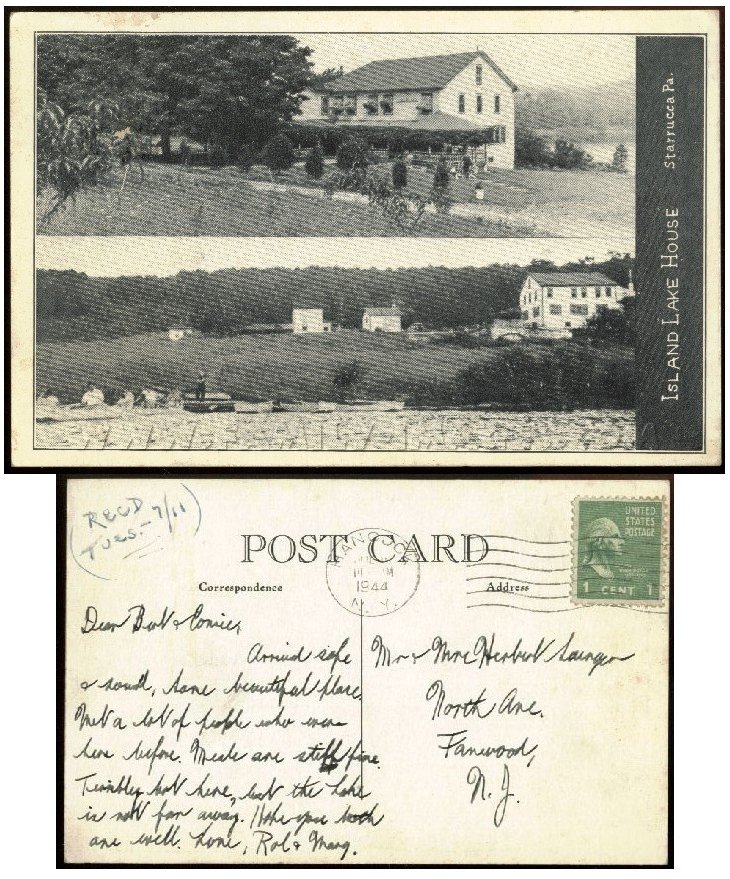 ISLAND LAKE HOUSE Starrucca Pa.
RECD 7/11
TUES.-
POST CARD
HANCOCK
1944
N. Y.
UNITED
STATES
POSTAGE
1 CENT 1
Correspondence
Address
Dear Bert &
Arrived safe
& sound, same beautiful place.
Met a lot of people who were
here before. Meals are still fine.
Terribly hot here, but the Lake
is not far away. Hope you both
are well. Love, Rol & Marg.
Mr & Mrs Herbert
North Ave.
Fanwood,
N. J.